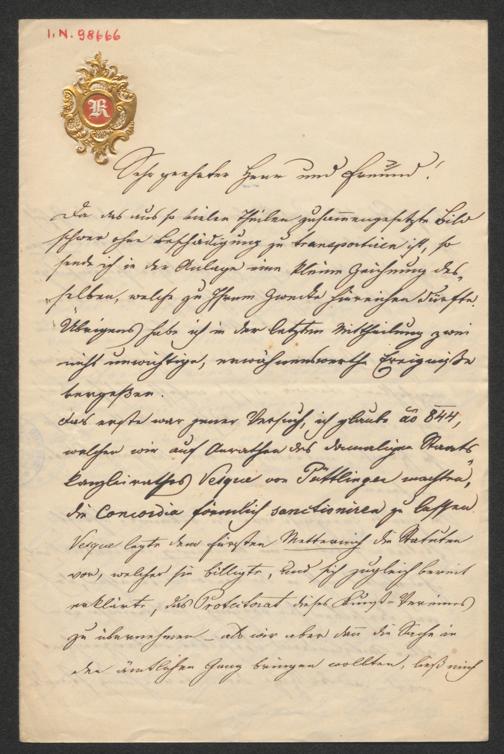 I.N. 98666
R
Sehr geehrter Herr und Freund!
Da das aus so vielen Theilen zusammengesetzte Bild
schwer ohne Beschädigung zu transportiren ist, so
sende ich in der Anlage eine kleine Zeichnung des-
selben, welche zu Ihrem Zwecke hinreichen dürfte.
Übrigens habe ich in der letzten Mittheilung zwei
nicht unwichtige, erwähnenswerthe Ereigniße
vergeßen.
das erste war jener Versuch, ich glaube ao 844,
welchen wir auf Anrathen des damaligen Staats-
kanzleirathes Vesque von Püttlingen machten,
die Concordia förmlich sanctioniren zu lassen
Vesque legte dem Fürsten Metternich die Statuten
vor, welcher sie billigte, und sich zugleich bereit
erklärte, das Protectorat dieses Kunst-Vereines
zu übernehmen – als wir aber dann die Sache in
den ämtlichen Gang bringen wollten, ließ mich